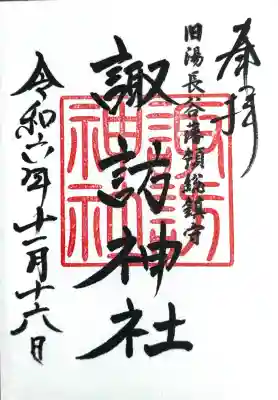 奉拝
旧湯長谷藩領総鎮守
諏訪神社
諏訪神社
令和六年十一月十六日